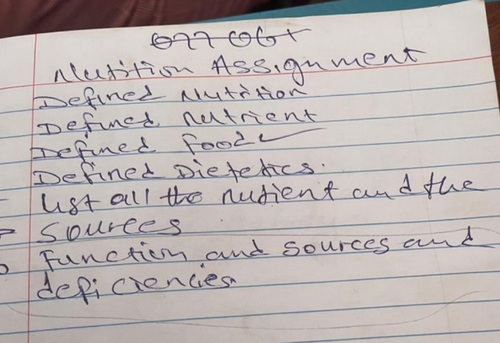 Nutition Assignment
Defined Nutition
Defined nutrient
Defined Food
Defined Dietetics.
List all the nutient and the
sources
Function and sources and
deficiencies.